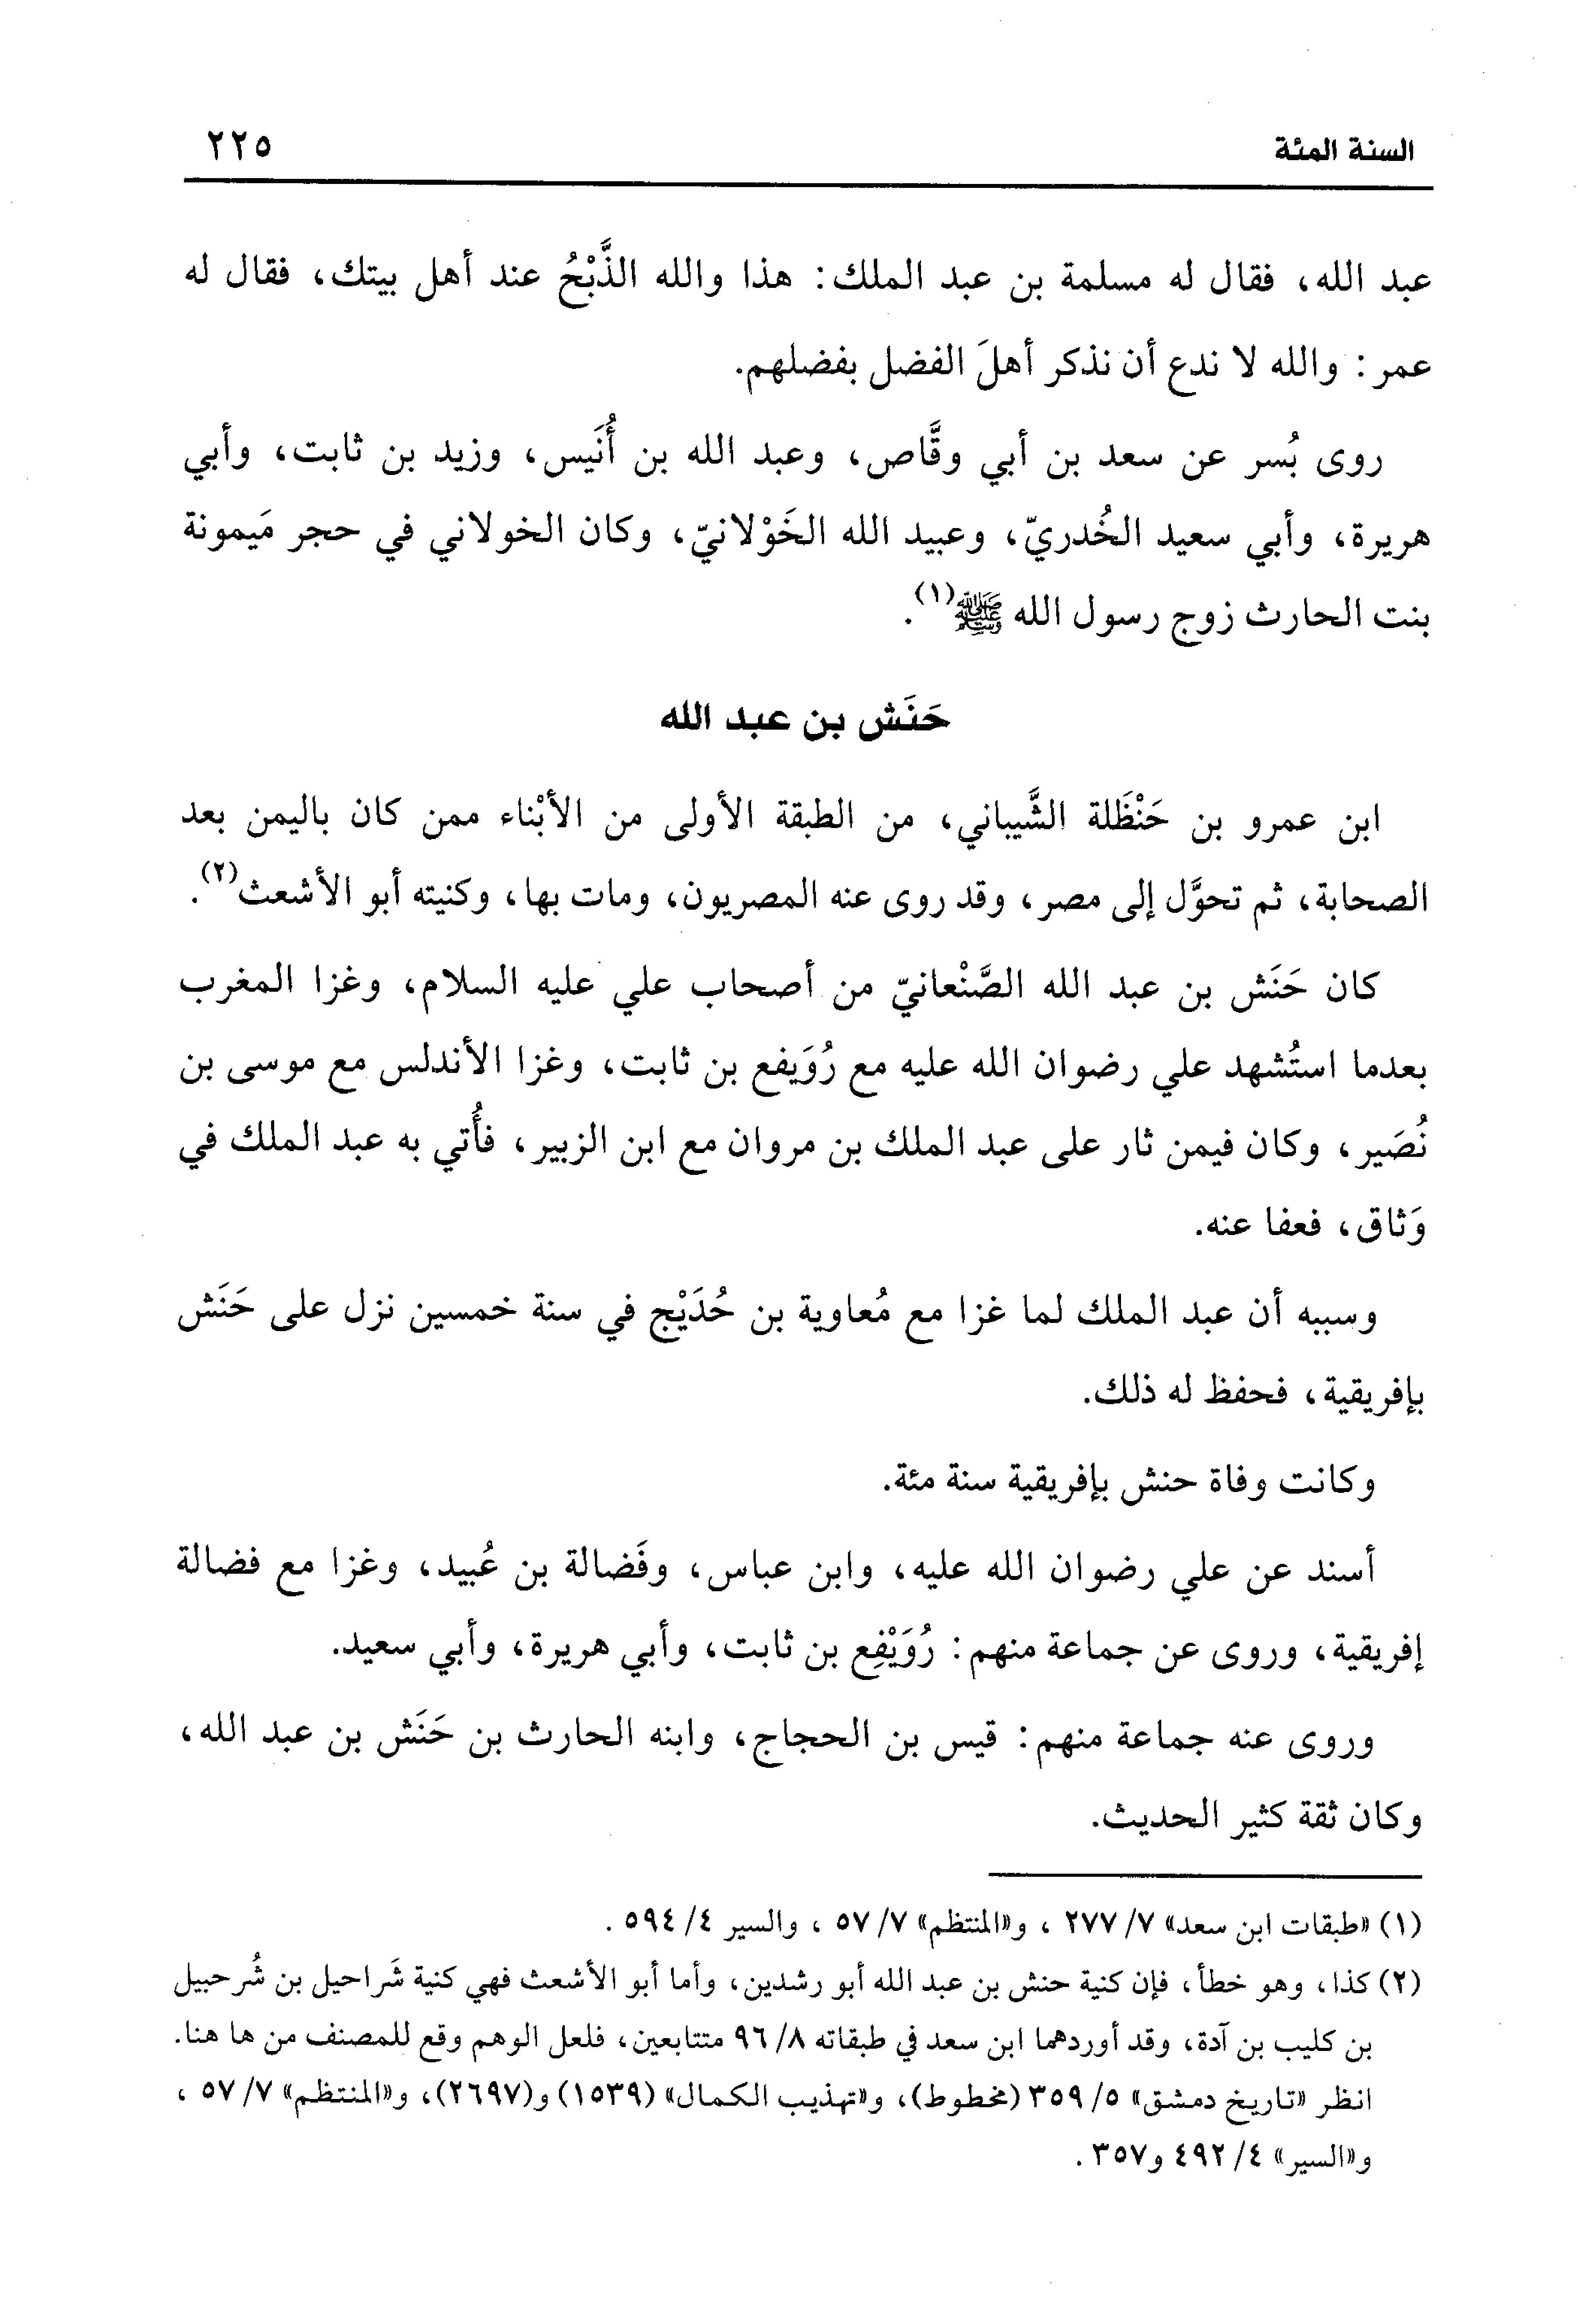 السنة المئة ٢٢٥
عبد الله، فقال له مسلمة بن عبد الملك: هذا والله الذَّبْحُ عند أهل بيتك، فقال له
عمر: والله لا ندع أن نذكر أهلَ الفضل بفضلهم.
روى بُسر عن سعد بن أبي وقَّاص، وعبد الله بن أُنَيس، وزيد بن ثابت، وأبي
هريرة، وأبي سعيد الخُدريّ، وعبيد الله الخَوْلانيّ، وكان الخولاني في حجر مَيمونة
بنت الحارث زوج رسول الله ﷺ(١).
حَنَش بن عبد الله
ابن عمرو بن حَنْظَلة الشَّيباني، من الطبقة الأولى من الأبْناء ممن كان باليمن بعد
الصحابة، ثم تحوَّل إلى مصر، وقد روى عنه المصريون، ومات بها، وكنيته أبو الأشعث(٢).
كان حَنَش بن عبد الله الصَّنْعانيّ من أصحاب علي عليه السلام، وغزا المغرب
بعدما استُشهد علي رضوان الله عليه مع رُوَيفع بن ثابت، وغزا الأندلس مع موسى بن
نُصَير، وكان فيمن ثار على عبد الملك بن مروان مع ابن الزبير، فأُتي به عبد الملك في
وَثاق، فعفا عنه.
وسببه أن عبد الملك لما غزا مع مُعاوية بن حُدَيْج في سنة خمسين نزل على حَنَش
بإفريقية، فحفظ له ذلك.
وكانت وفاة حنش بإفريقية سنة مئة.
أسند عن علي رضوان الله عليه، وابن عباس، وفَضالة بن عُبيد، وغزا مع فضالة
إفريقية، وروى عن جماعة منهم: رُوَيْفِع بن ثابت، وأبي هريرة، وأبي سعيد.
وروى عنه جماعة منهم: قيس بن الحجاج، وابنه الحارث بن حَنَش بن عبد الله،
وكان ثقة كثير الحديث.
(١) «طبقات ابن سعد» ٧/ ٢٧٧ ، و«المنتظم» ٧/ ٥٧ ، والسير ٤/ ٥٩٤ .
(٢) كذا، وهو خطأ، فإن كنية حنش بن عبد الله أبو رشدين، وأما أبو الأشعث فهي كنية شَراحيل بن شُرحبيل
بن كليب بن آدة، وقد أوردهما ابن سعد في طبقاته ٨/ ٩٦ متتابعين، فلعل الوهم وقع للمصنف من ها هنا.
انظر «تاريخ دمشق» ٥/ ٣٥٩ (مخطوط)، و«تهذيب الكمال» (١٥٣٩) و(٢٦٩٧)، و«المنتظم» ٧/ ٥٧ ،
و«السير» ٤/ ٤٩٢ و٣٥٧ .